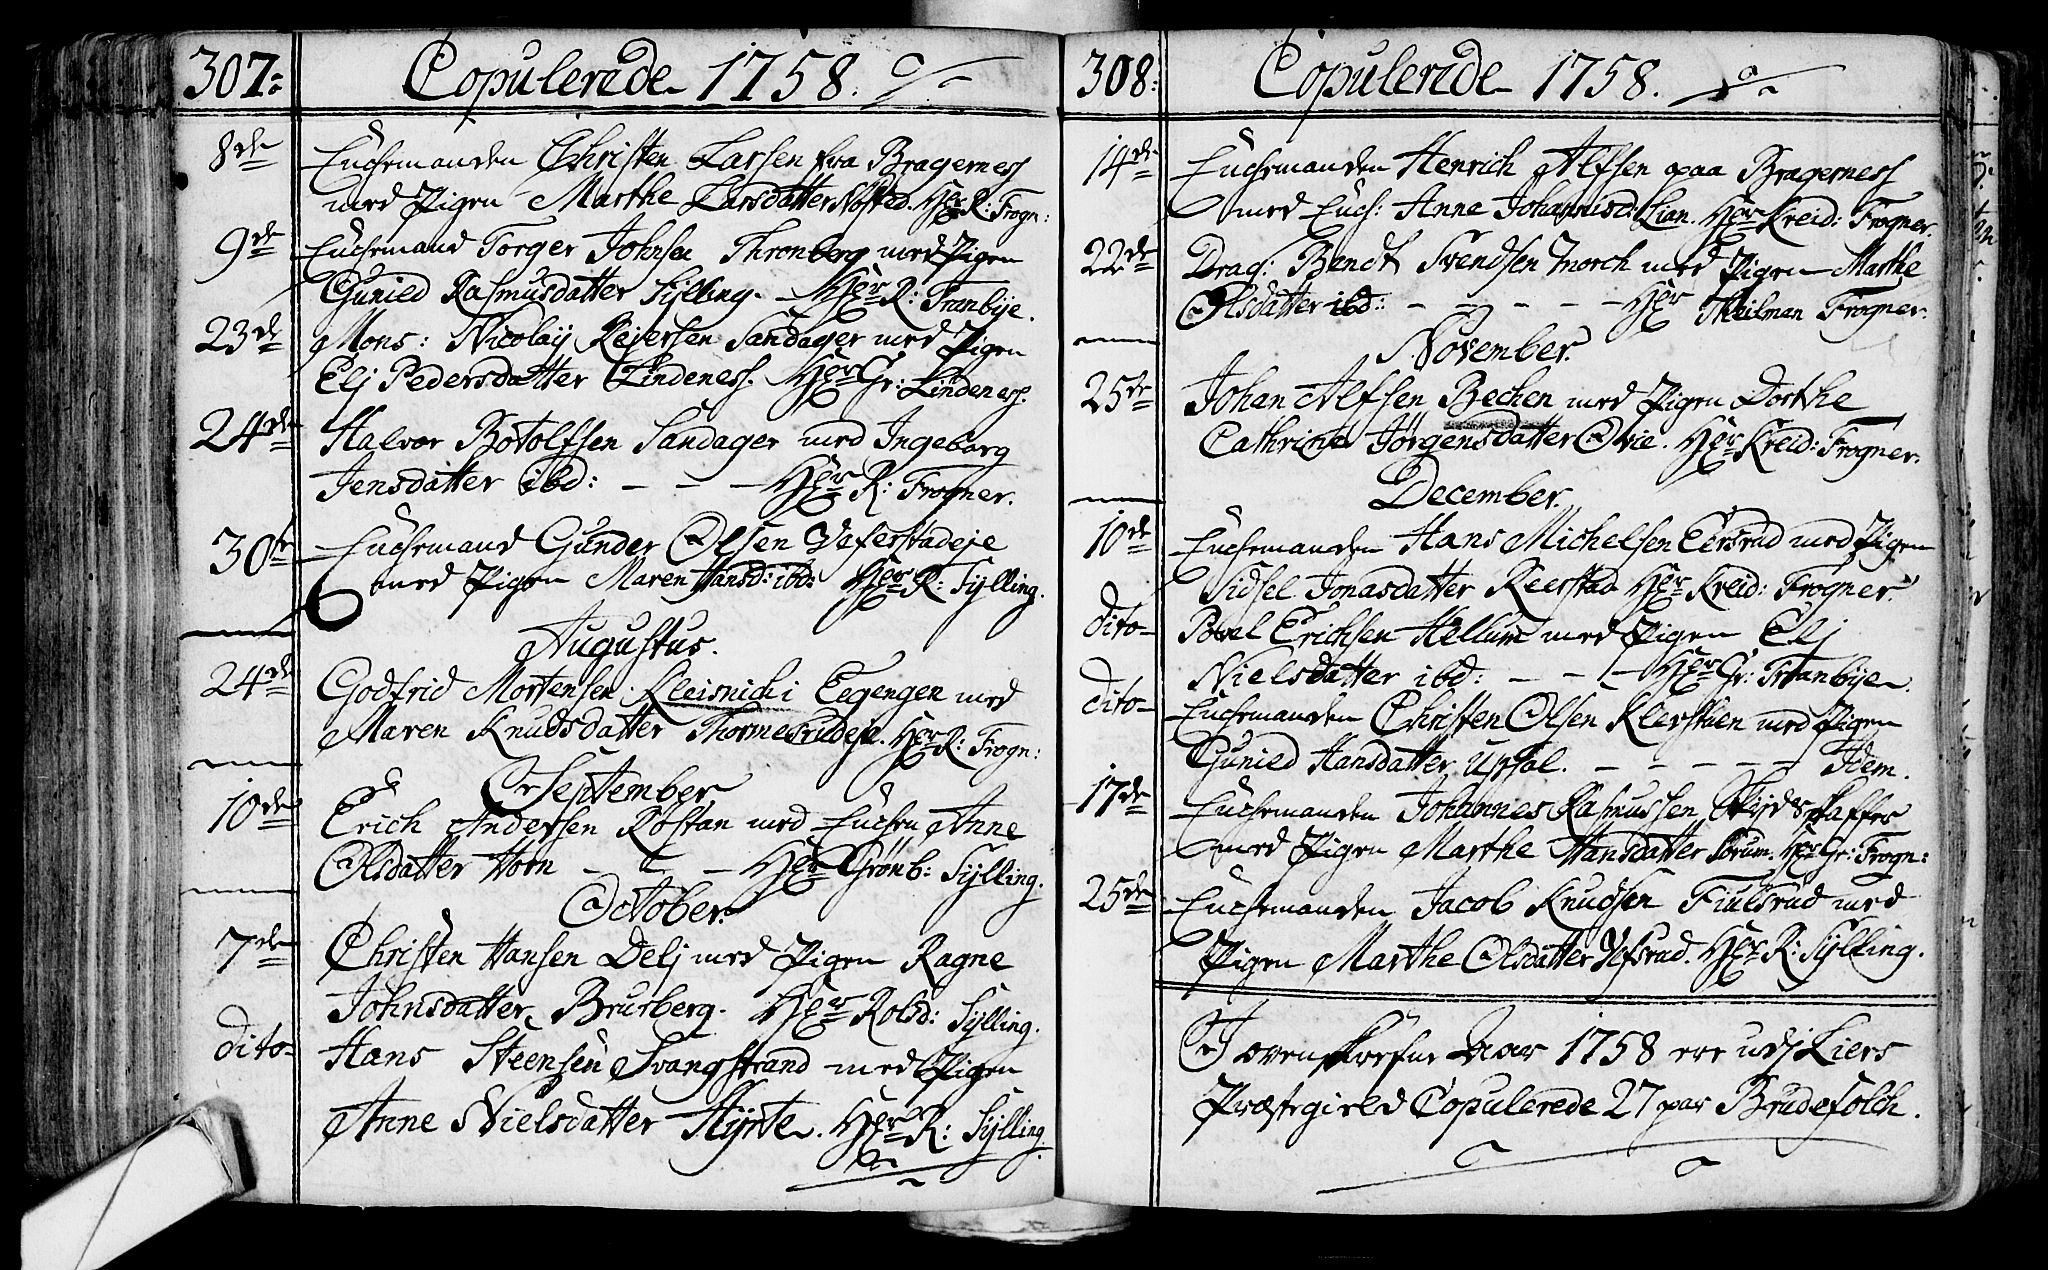 307:
Copulerede 1758.
8de Enchemanden Christen Larsen fra Bragerness
med Pigen Marthe Larsdatter Nøsted. Her R: Frogn:
9de Enchemand Torger Johnsen Thronberg med Pigen
Gunild Rasmusdatter Sylling. Her R: Tranbye.
23de Mons: Nicolaij Reiersen Sandager med Pigen
Elj Pedersdatter Lindeness. Her Gr: Lindeness.
24de Halvor Botolfsen Sandager med Ingeborg
Jensdatter ibd: - - - Her R: Frogner.
30te Enchemand Gunder Olsen Veferstadeje
med Pigen Maren Hansd: ibd: Her R: Sylling.
Augustus.
24de Godfrid Mortensen Kleisnicki Eegengen med
Maren Knudsdatter Thormesrudeje. Her R: Frogn:
September
10de Erich Andersen Rostan med Enchen Anne
Olsdatter Horn - - - Her Grønb: Sylling.
October.
7de Christen Hansen Delj med Pigen Ragne
Johnsdatter Brusberg. Her Rolsd: Sylling.
dito- Hans Steensen Svangstrand med Pigen
Anne Nielsdatter Hyrte. Her R: Sylling.
308:
Copulerede 1758.
14de Enchemanden Henrich Alfsen paa Bragerness
med Ench: Anne Johannisd: Lian. Her Kreid: Frogner.
22de Drag: Bendt Svendsen Morch med Pigen Marthe
Olsdatter ibd: - - - - - Her Meilman Frogner.
November.
25de Johan Alfsen Bechen med Pigen Dorthe
Cathrine Jørgensdatter Ovie. Her Kreid: Frogner.
December.
10de Enchemanden Hans Michelsen Eersrud med Pigen
Sidsel Jonasdatter Reerstad Her Kreid: Frogner.
dito- Povel Erichsen Hellum med Pigen Elj
Nielsdatter ibd: - - - Her Gr: Tranbye.
dito- Enchemanden Christen Olsen Klerstuen med Pigen
Gunild Hansdatter Upsal. - - - - - Idem.
17de Enchemanden Johannes Rasmussen
med Pigen Marthe Hansdatter Sørum. Her Gr: Frogn:
25de Enchemanden Jacob Knudsen Fiulsrud med
Pigen Marthe Olsdatter Vefsrud. Her R: Sylling.
I ovenskrefne Aar 1758 ere udj Liers
Præstegield Copulerede 27 par Brudefolch.